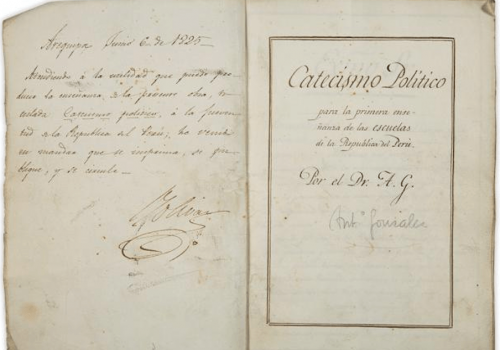 Arequipa Junio 6 de 1825
Atendiendo á la utilidad que puede pro-
ducir la enseñanza, de la presente obra, ti-
tulada Catecismo politico, á la juven-
tud de la Republica del Perú, he venido
en mandar que se imprima, se pu-
blique, y se circule
Bolivar
Catecismo Politico
para la primera ense-
ñanza de las escuelas
de la Republica del Perú.
Por el Dr. A. G.
Ant.º Gonzales